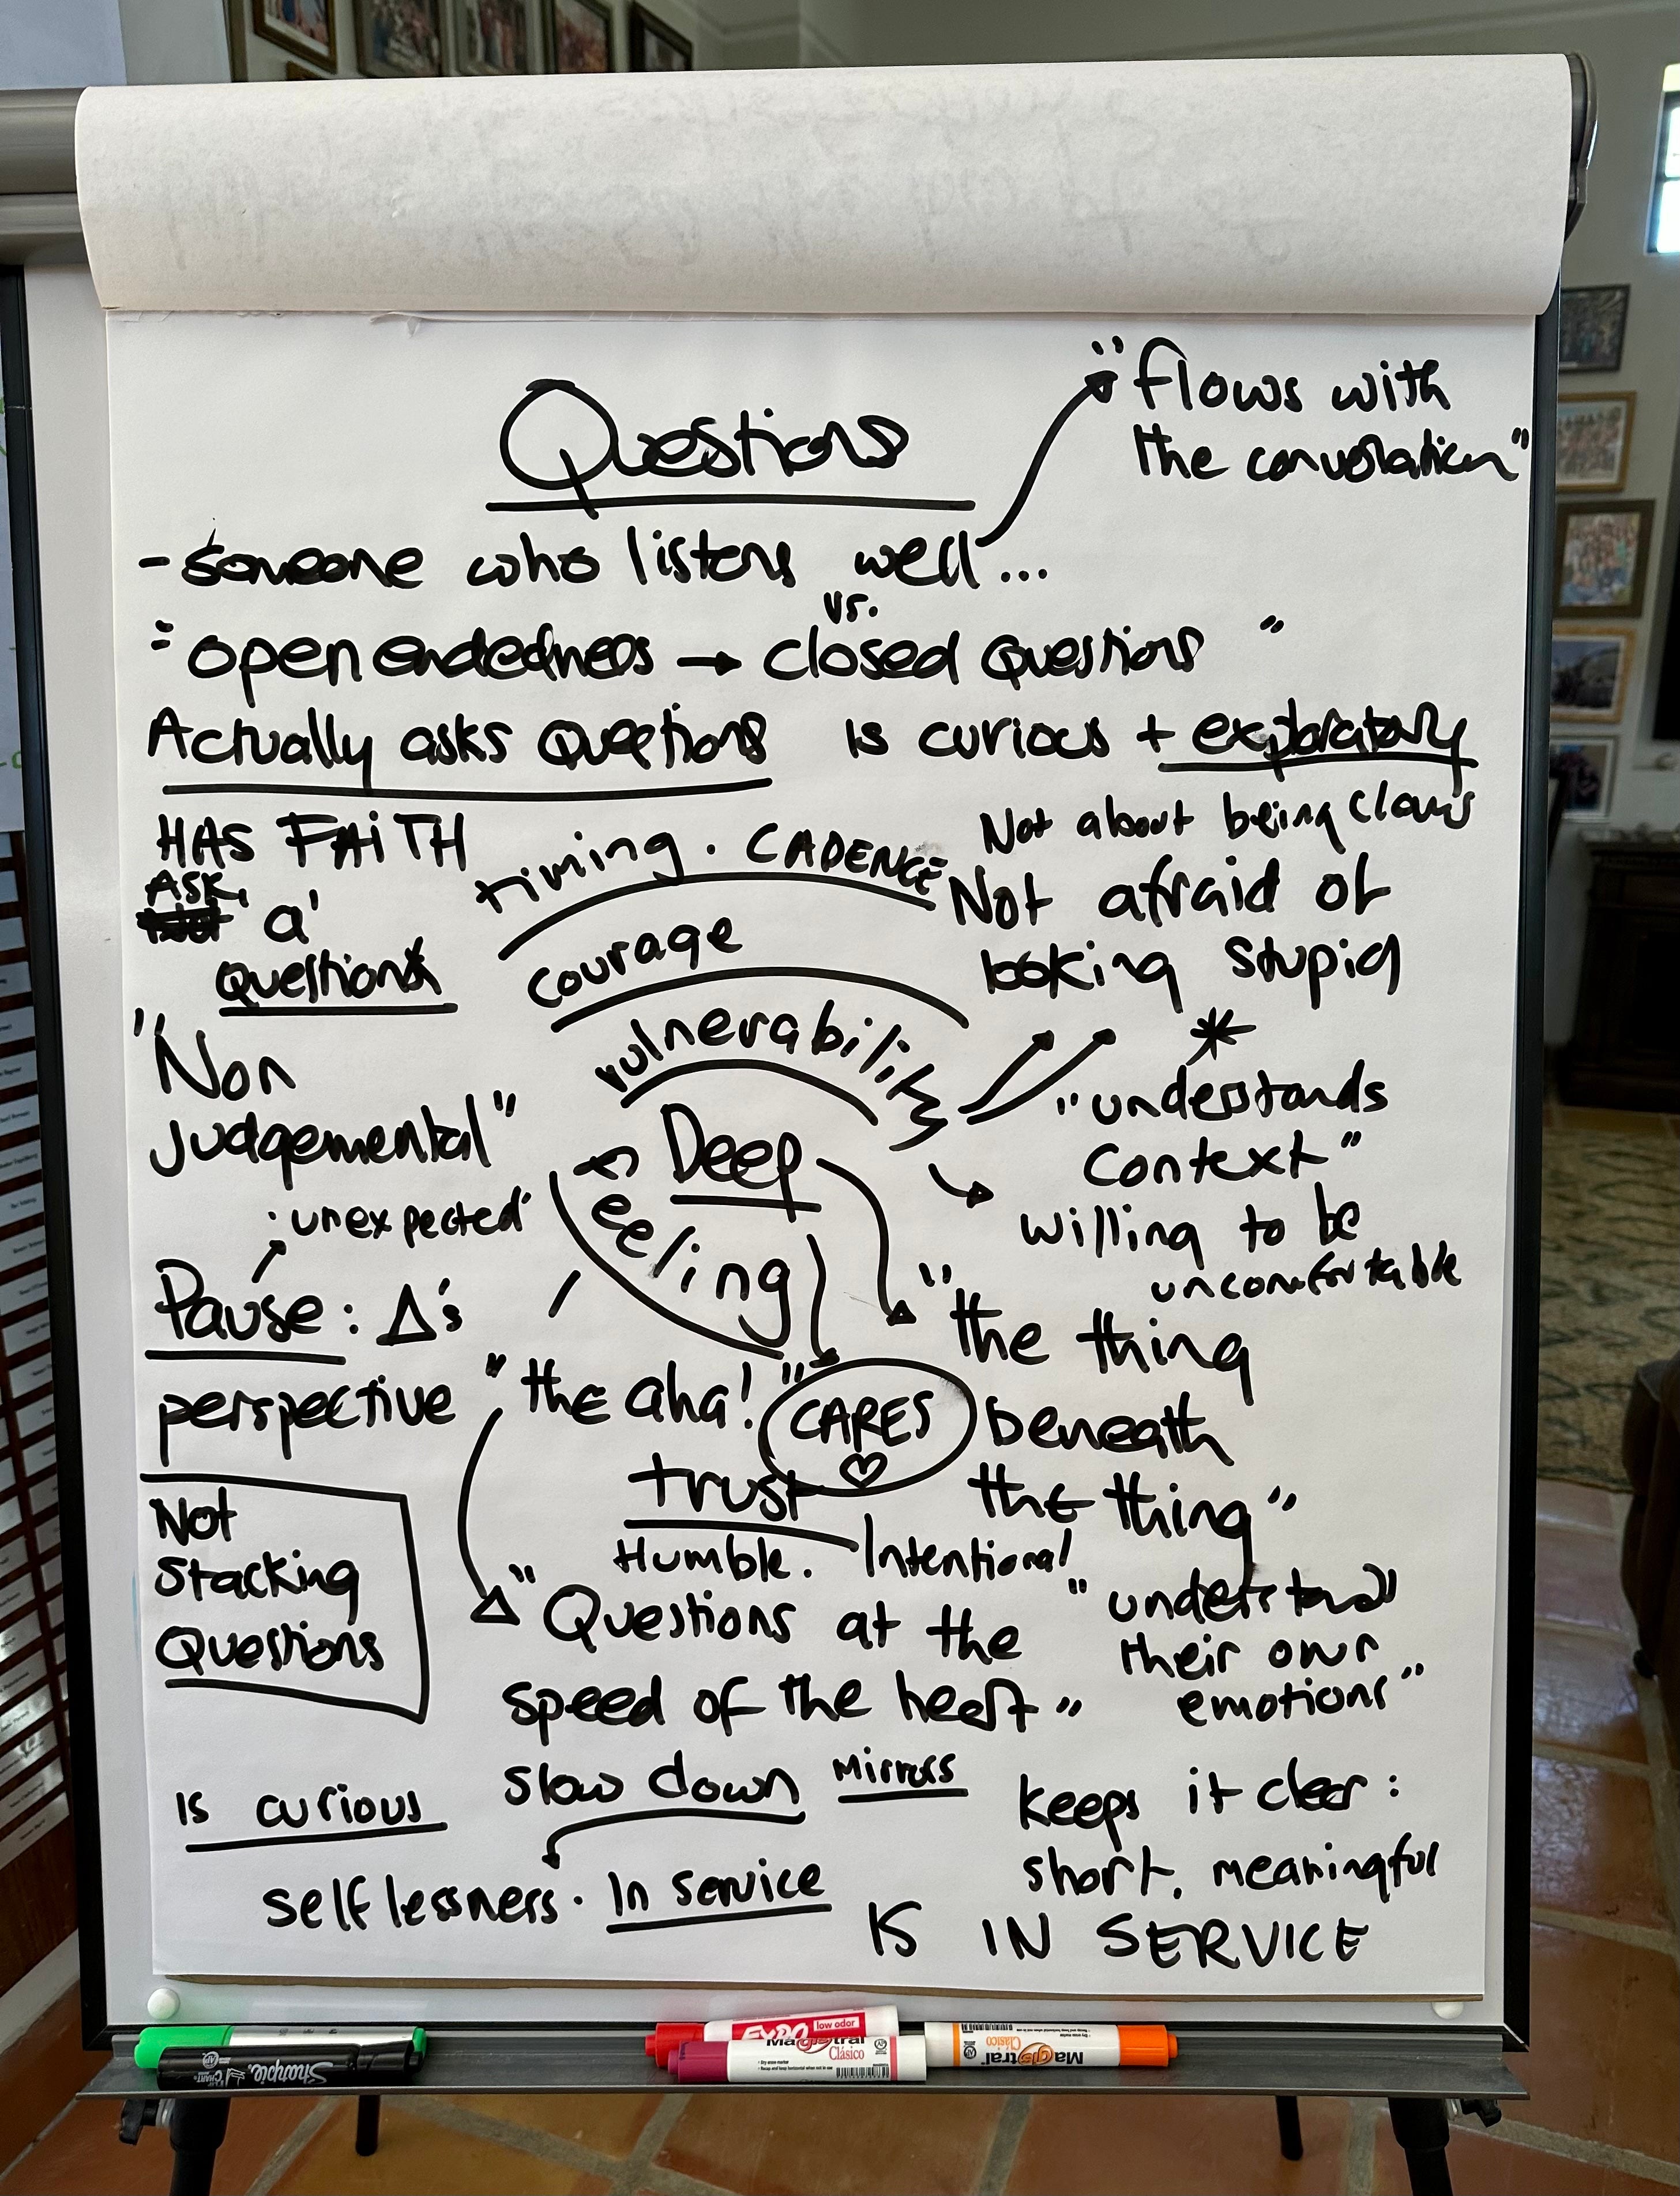 Questions
"flows with
the conversation"
- someone who listens well...
vs.
"open endedness → closed Questions"
Actually asks Questions
is curious + exploratory
HAS FAITH
ASK
a
Question
timing . CADENCE
courage
vulnerability
Deep
feeling
Not about being clever
Not afraid of
looking stupid
*
"understands
context"
willing to be
uncomfortable
"Non
Judgemental"
unexpected
Pause : Δ's
perspective
"the aha!"
CARES
♡
"the thing
beneath
the thing"
trust
Humble. Intentional
Not
Stacking
Questions
"Questions at the
speed of the heart"
"understand
their own
emotions"
slow down
Mirrors
is curious
selflessness. In service
keeps it clear:
short, meaningful
IS IN SERVICE
Sharpie
CHART
EXPO low odor
Magistral
Clásico
Magistral
Clásico